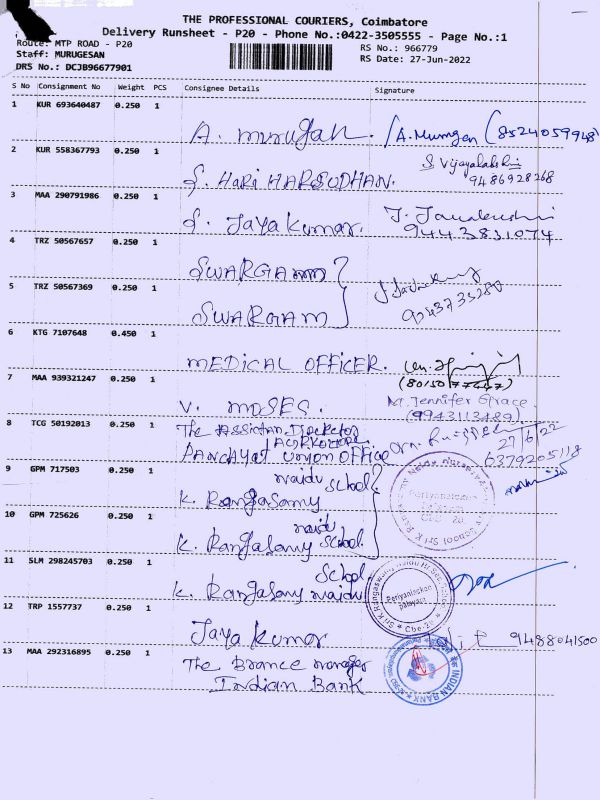 THE PROFESSIONAL COURIERS, Coimbatore
Delivery Runsheet - P20 - Phone No.:0422-3505555 - Page No.:1
Route: MTP ROAD - P20
RS No.: 966779
Staff: MURUGESAN
RS Date: 27-Jun-2022
DRS No.: DCJB96677901
S No Consignment No Weight PCS Consignee Details Signature
1 KUR 693640487 0.250 1
A. murugan. (8524059948)
2 KUR 558367793 0.250 1
S. HARI HARSUDHAN. S Vijayalakshmi
9486928268
3 MAA 290791986 0.250 1
S. Jaya Kumar.
9443831074
4 TRZ 50567657 0.250 1
SWARGAM
5 TRZ 50567369 0.250 1
SWARGAM
6 KTG 7107648 0.450 1
MEDICAL OFFICER.
7 MAA 939321247 0.250 1
V. MOSES. M. Jennifer Grace.
(9943113489)
8 TCG 50192013 0.250 1
The Assistan Director
27/6/22
PANCHAYAT UNION OFFICE 6379205118
9 GPM 717503 0.250 1
naidu School
K. Rangasamy
10 GPM 725626 0.250 1
naidu
K. Rangasamy School.
11 SLM 298245703 0.250 1
School
K. Rangasamy naidu
Periyanaicken
palayam
12 TRP 1557737 0.250 1
Jaya Kumar 9488041500
13 MAA 292316895 0.250 1
The Brance manager
Indian Bank
INDIAN BANK